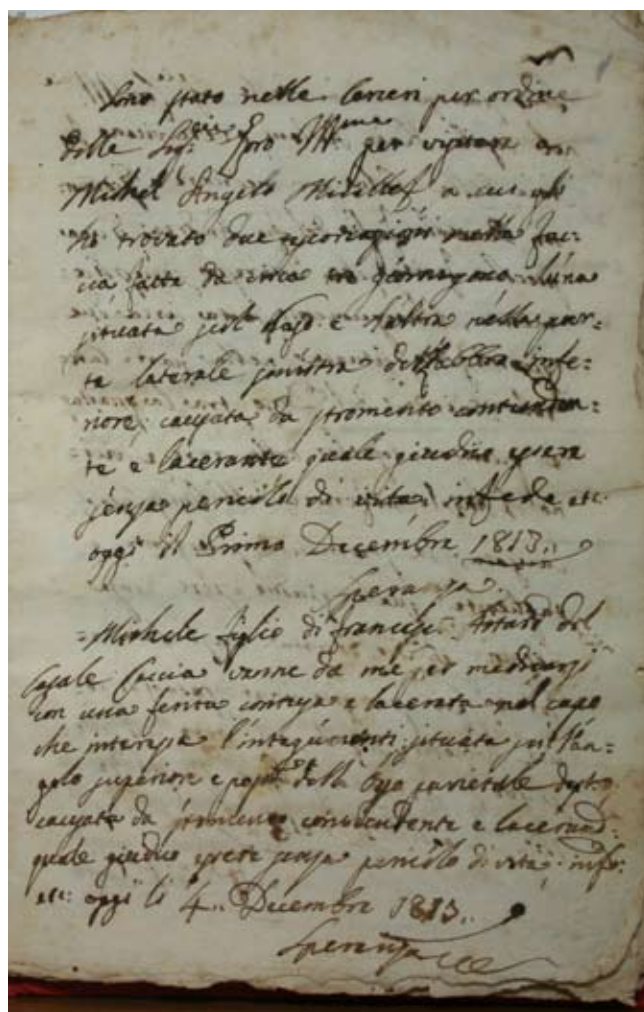 Sono stato nelle Carceri per ordine
delle Sig: Loro Ill.me per visitare
Michel Angelo Mifsud a cui gli
ho trovato due escoriazioni nella fac:
cia fatte da circa un giorno, una
situata sul naso e l'altra nella par:
te laterale sinistra del labbro infe:
riore, causata da stromento contunden:
te e lacerante quale giudico essere
senza pericolo di vita, in fede etc:
oggi il Primo Decembre 1813..
Speranza
Michele figlio di Francesco Attard del
Casale Luccia venne da me per medicarsi
con una ferita contusa e lacerata nel capo
che interessa l'integumenti situata sul l'an:
golo superiore e post.re dell'osso parietale destro
causata da stromento contundente e lacerand:
quale giudico essere senza pericolo di vita inf:
etc: oggi li 4.. Decembre 1813..
Speranza